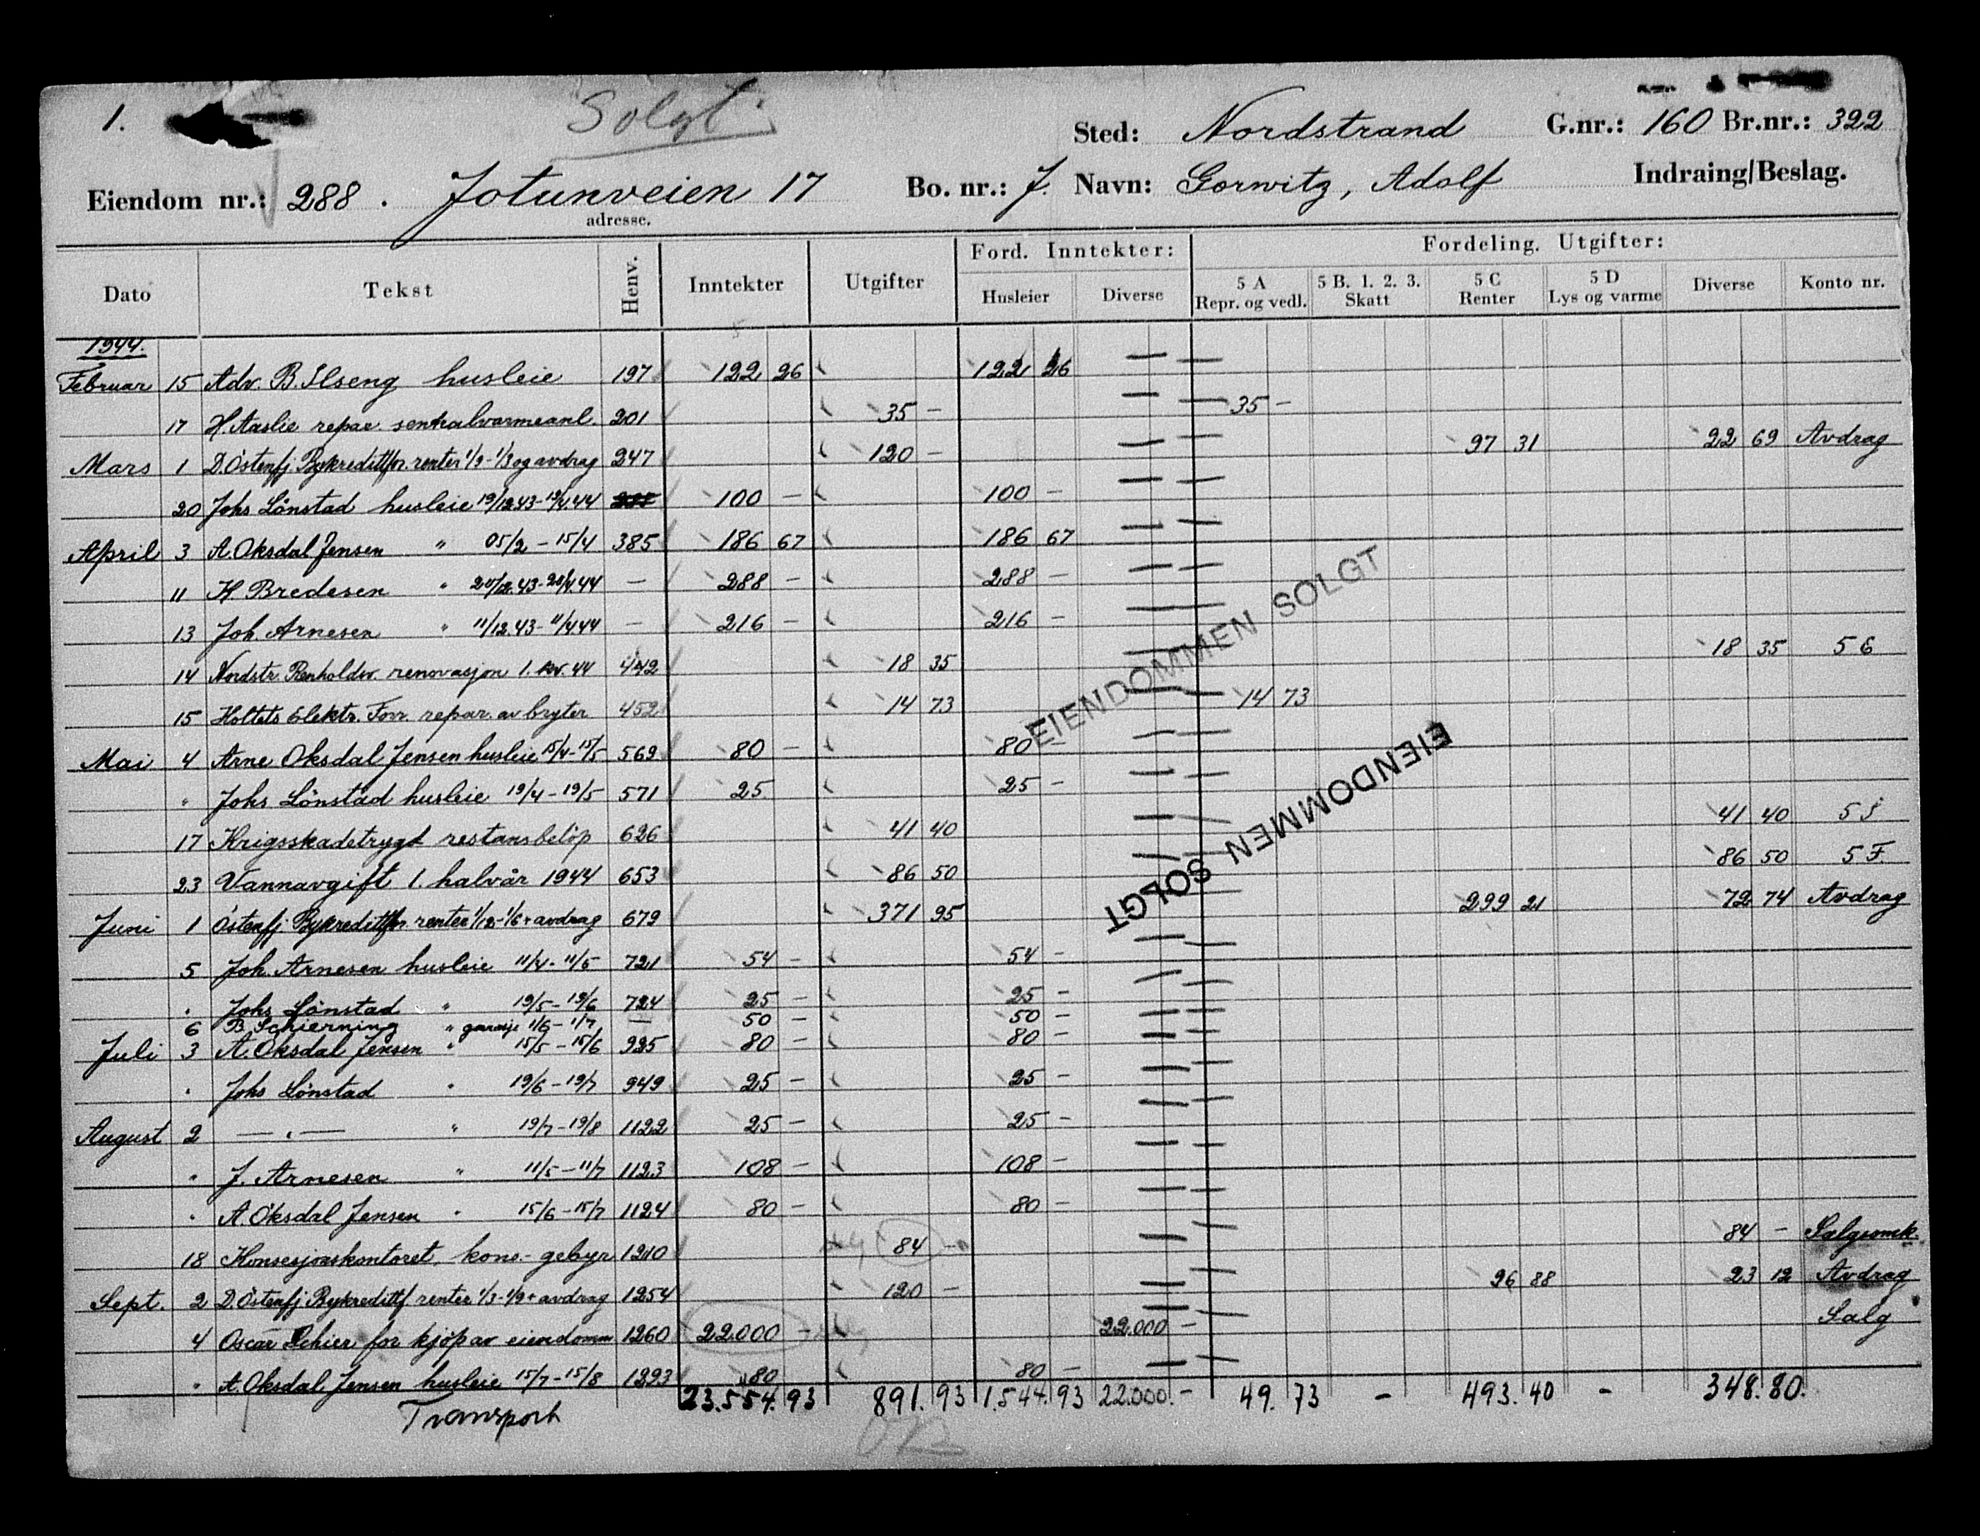 1. Solgt.
Sted: Nordstrand G.nr.: 160 Br.nr.: 322
Eiendom nr.: 288. Jotunveien 17 Bo. nr.: J. Navn: Gorwitz, Adolf Indraing/Beslag.
adresse.
Dato Tekst Henv. Inntekter Utgifter Ford. Inntekter: Fordeling. Utgifter:
Husleier Diverse 5 A Repr. og vedl. 5 B. 1. 2. 3. Skatt 5 C Renter 5 D Lys og varme Diverse Konto nr.
1944.
Februar 15 Adv. B. Ilseng husleie 197 122 26 122 26 — —
17 H. Aaslie repar. sentralvarmeanl. 201 35 — — — 35 —
Mars 1 D. Östenfj. Bykredittfor. renter 1/9 - 1/3 og avdrag 247 120 — — — 97 31 22 69 Avdrag
20 Johs Lönstad husleie 19/12.43 - 19/4.44 100 — 100 — — —
April 3 A. Oksdal Jensen " 05/2 - 15/4 385 186 67 186 67 — —
11 H. Bredesen " 20/12.43 - 20/4.44 — 288 — 288 — — —
13 Joh. Arnesen " 11/12.43 - 11/4.44 — 216 — 216 — — —
14 Nordstr. Renholdsv. renovasjon 1. kv. 44 442 18 35 — — 18 35 5 G
15 Holtets Elektr. Forr. repar. av bryter 452 14 73 — — 14 73
Mai 4 Arne Oksdal Jensen husleie 15/4 - 15/5 569 80 — 80 — — —
" Johs Lönstad husleie 19/4 - 19/5 571 25 25 — — —
17 Krigsskadetrygd restansbelöp 626 41 40 — — 41 40 5 J
23 Vannavgift 1. halvår 1944 653 86 50 — — 86 50 5 F
Juni 1 Östenfj. Bykredittfor. renter 1/12 - 1/6 + avdrag 679 371 95 299 21 72 74 Avdrag
5 Joh. Arnesen husleie 11/4 - 11/5 721 54 — 54 — — —
" Johs Lönstad " 19/5 - 19/6 724 25 — 25 — — —
6 B. Schierning " garasje 1/6 - 1/7 — 50 — 50 — — —
Juli 3 A. Oksdal Jensen " 15/5 - 15/6 925 80 — 80 — — —
" Johs Lönstad " 19/6 - 19/7 949 25 — 25 — — —
August 2 — " — " 19/7 - 19/8 1122 25 — 25 — — —
" J. Arnesen " 11/5 - 11/7 1123 108 — 108 — — —
" A. Oksdal Jensen " 15/6 - 15/7 1124 80 — 80 — — —
18 Konsesjonskontoret, kons.-gebyr 1210 84 — — — 84 — Salgsomk.
Sept. 2 D. Östenfj. Bykredittf. renter 1/3 - 1/9 + avdrag 1254 120 — — — 96 88 23 12 Avdrag
4 Oscar Schier for kjöp av eiendomm 1260 22000 — 22.000 — — Salg
" A. Oksdal Jensen husleie 15/7 - 15/8 1293 80 80 — — —
Transport 23.554.93 891.93 1.544.93 22.000.— 49.73 — 493.40 — 348.80.
EIENDOMMEN SOLGT
EIENDOMMEN SOLGT